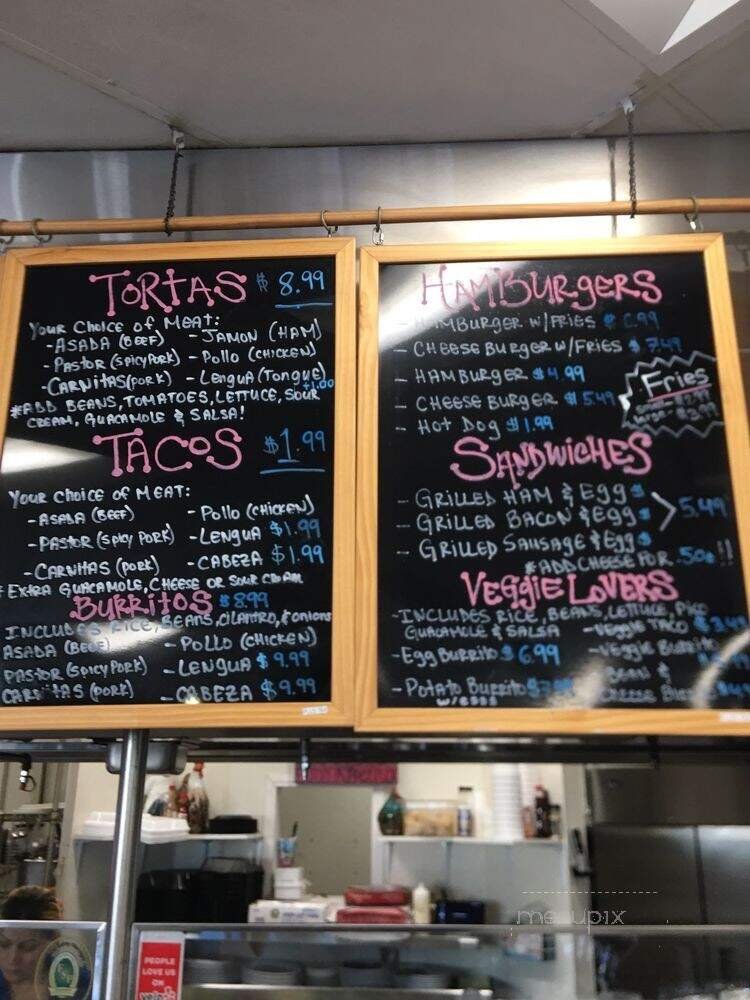 TORTAS $ 8.99
Your Choice of Meat:
- ASADA (BEEF) - JAMON (HAM)
- PASTOR (SPICY PORK) - Pollo (CHICKEN)
- CARNITAS (PORK) - Lengua (Tongue) +1.00
*ADD BEANS, TOMATOES, LETTUCE, SOUR
CREAM, GUACAMOLE & SALSA!
TACOS $1.99
Your Choice of MEAT:
- ASADA (BEEF) - Pollo (CHICKEN)
- PASTOR (SPICY PORK) - LENGUA $1.99
- CARNITAS (PORK) - CABEZA $1.99
* EXTRA GUACAMOLE, CHEESE OR SOUR CREAM
BURRITOS $8.99
INCLUDES RICE, BEANS, CILANTRO, & onions
ASADA (BEEF) - POLLO (CHICKEN)
PASTOR (SPICY PORK) - LENGUA $ 9.99
CARNITAS (PORK) - CABEZA $9.99
HAMBURGERS
- HAMBURGER W/FRIES $ 6.99
- CHEESE BURGER W/FRIES $ 7.49
- HAMBURGER $4.99
- CHEESE BURGER $5.49
- HOT DOG $1.99
Fries
$3.99
SANDWICHES
- GRILLED HAM & Egg $
- GRILLED BACON & Egg $ 5.49
- GRILLED SAUSAGE & Egg $
*ADD CHEESE FOR .50¢!!
VEGGIE LOVERS
- INCLUDES RICE, BEANS, LETTUCE, PICO
GUACAMOLE & SALSA - VEGGIE TACO
- Egg BURRITO $ 6.99 - VEGGIE BURRITO
- POTATO BURRITO BEAN &
W/EGGS CHEESE
menupix
PEOPLE
LOVE US
ON